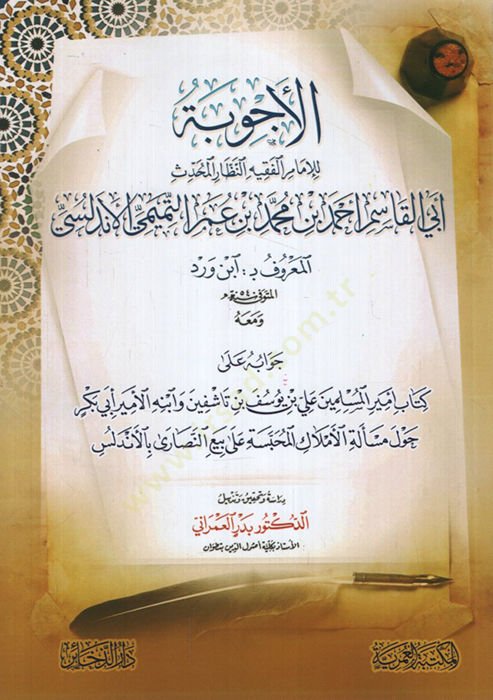 الأجوبة
للإمام الفقيه النظار المحدث
أبي القاسم أحمد بن محمد بن عمر التميمي الأندلسي
المعروف بـ: ابن ورد
المتوفى سنة ٥٤٠ هـ
ومعه
جوابه على
كتاب أمير المسلمين علي بن يوسف بن تاشفين وابنه الأمير أبي بكر
حول مسألة الأملاك المحبسة على بيع النصارى بالأندلس
دراسة وتحقيق وتذييل
الدكتور بدر العمراني
الأستاذ بكلية أصول الدين بتطوان
المكتبة العمرية
دار الذخائر